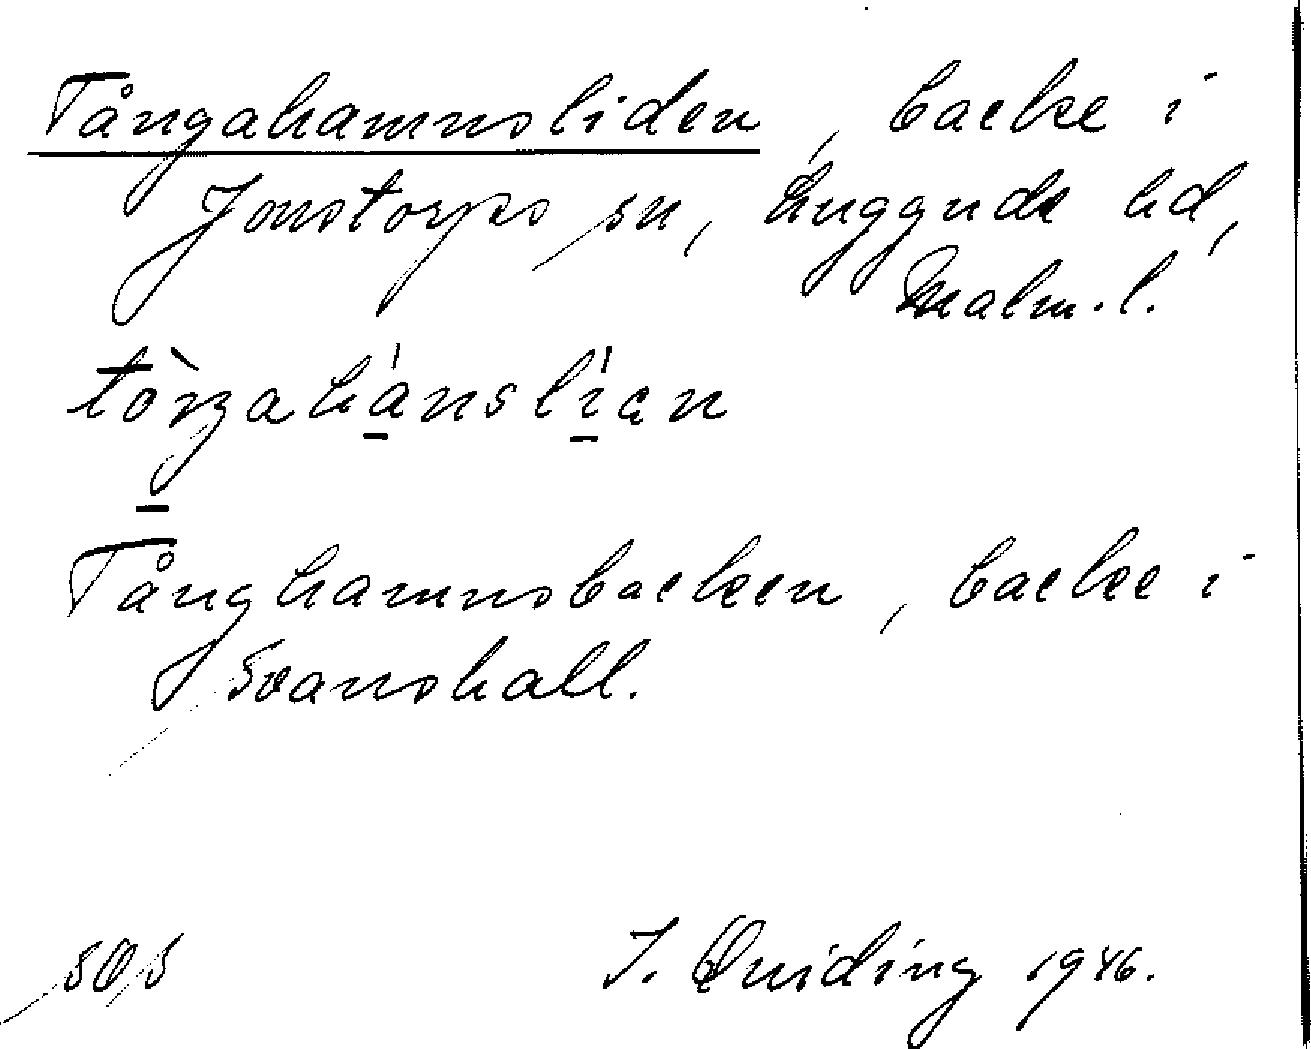 Tångahamnsliden, backe i
Jonstorps sn, Luggude hd,
Malm. l.
Tånghamnsbacken, backe i
Svanshall.
J. Quiding 1946.